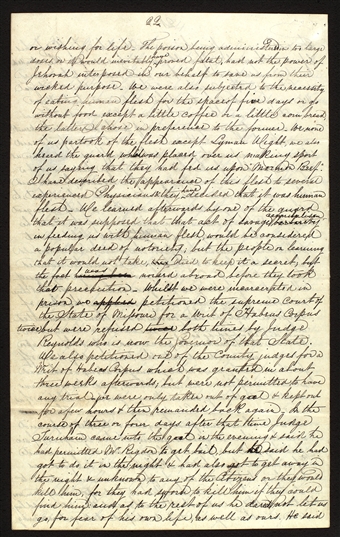 22
or wishing for life. The poison being administered in too large
doses or it would inevitably have proved fatal, had not the power of
Jehovah interposed in our behalf to save us from their
wicked purpose. We were also subjected to the necessity
of eating human flesh for the space of five days or go
without food except a little coffee or a little corn bread,
the latter I chose in preference to the former. We none
of us partook of the flesh except Lyman Wight, we also
heard the guard which was placed over us making sport
of us saying that they had fed us upon "Mormon Beef."
I have described the appearance of this flesh to several
experienced Physicians & they have decided that it was human
flesh. We learned afterwards by one of the guard
that it was supposed that that act of savage cannibalism
in feeding us with human flesh would be considered
a popular deed of notoriety, but the people on learning
that it would not take, tried to keep it a secret, but
the fact was noised abroad before they took
that precaution. Whilst we were incarcerated in
prison we applied petitioned the supreme Court of
the State of Missouri for a writ of Habeas Corpus
twice but were refused twice both times by Judge
Reynolds who is now the Governor of that State.
We also petitioned one of the County Judges for a
Writ of Habeas Corpus which was granted in about
three weeks afterwards, but were not permitted to have
any trial, for we were only taken out of goal & kept out
for a few hours & then remanded back again. In the
course of three or four days after that time Judge
Turnham came into the goal in the evening & said he
had permitted Mr. Rigdon to get bail, but he said he had
got to do it in the night & had also got to get away in
the night & unknown to any of the Citizens or they would
kill him, for they had sworn to kill him if they could
find him; and as to the rest of us he dared not let us
go, for fear of his own life, as well as ours. He said